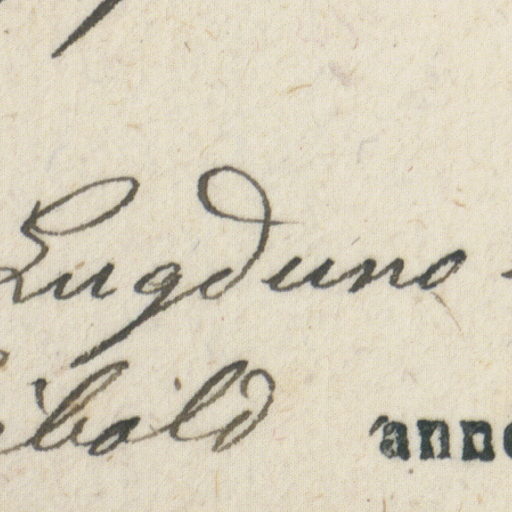 Lugduno -
ibold anno